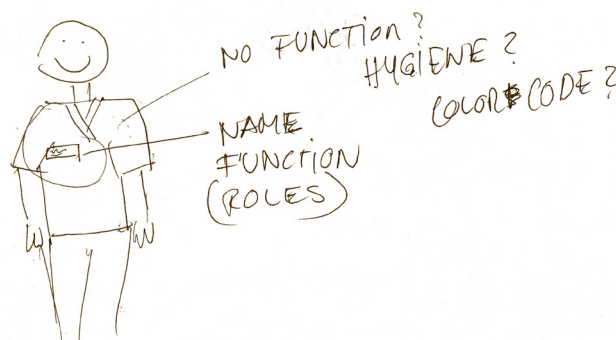 NO FUNCTION?
HYGIENE?
COLOR CODE?
NAME
FUNCTION
(ROLES)